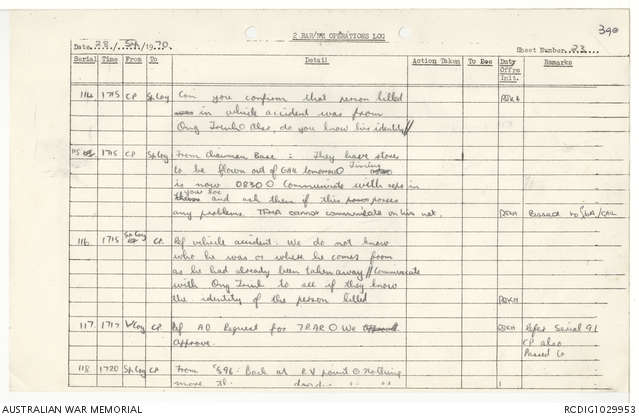 2 RAR/NZ OPERATIONS LOG
390
Date 28 / 1970
Sheet Number 23
Serial Time From To Detail Action Taken To Dec Duty Offrs Init. Remarks
114 1715 CP Sp Coy Can you confirm that person killed
in vehicle accident was from
Ong Trinh O Also, do you know his identity //
115 1715 CP Sp Coy From Chairman Base : They have stores
to be flown out of tomorrow O Timing
is now 0830 O Communicate with reps in
your loc and ask them if this poses
any problems. cannot communicate on his net.
116 1715 Sp Coy CP Ref vehicle accident. We do not know
who he was or where he comes from
as he had already been taken away // Communicate
with Ong Trinh to see if they know
the identity of the person killed
117 1717 V Coy CP Ref AO Request for 7RAR O We
approve.
Refer Serial 91
CP also
Passed to
118 1720 Sp Coy CP From 59G : Back at RV point O Nothing
AUSTRALIAN WAR MEMORIAL
RCDIG1029953